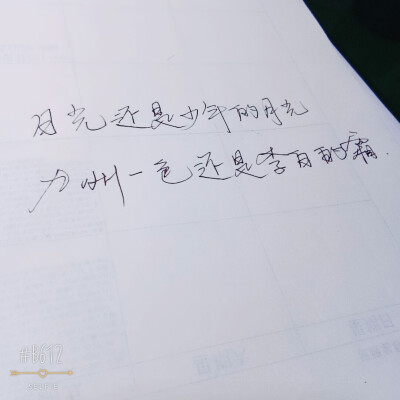 月光还是少年的月光
九州一色还是李白的霜
#B612
SELFIE